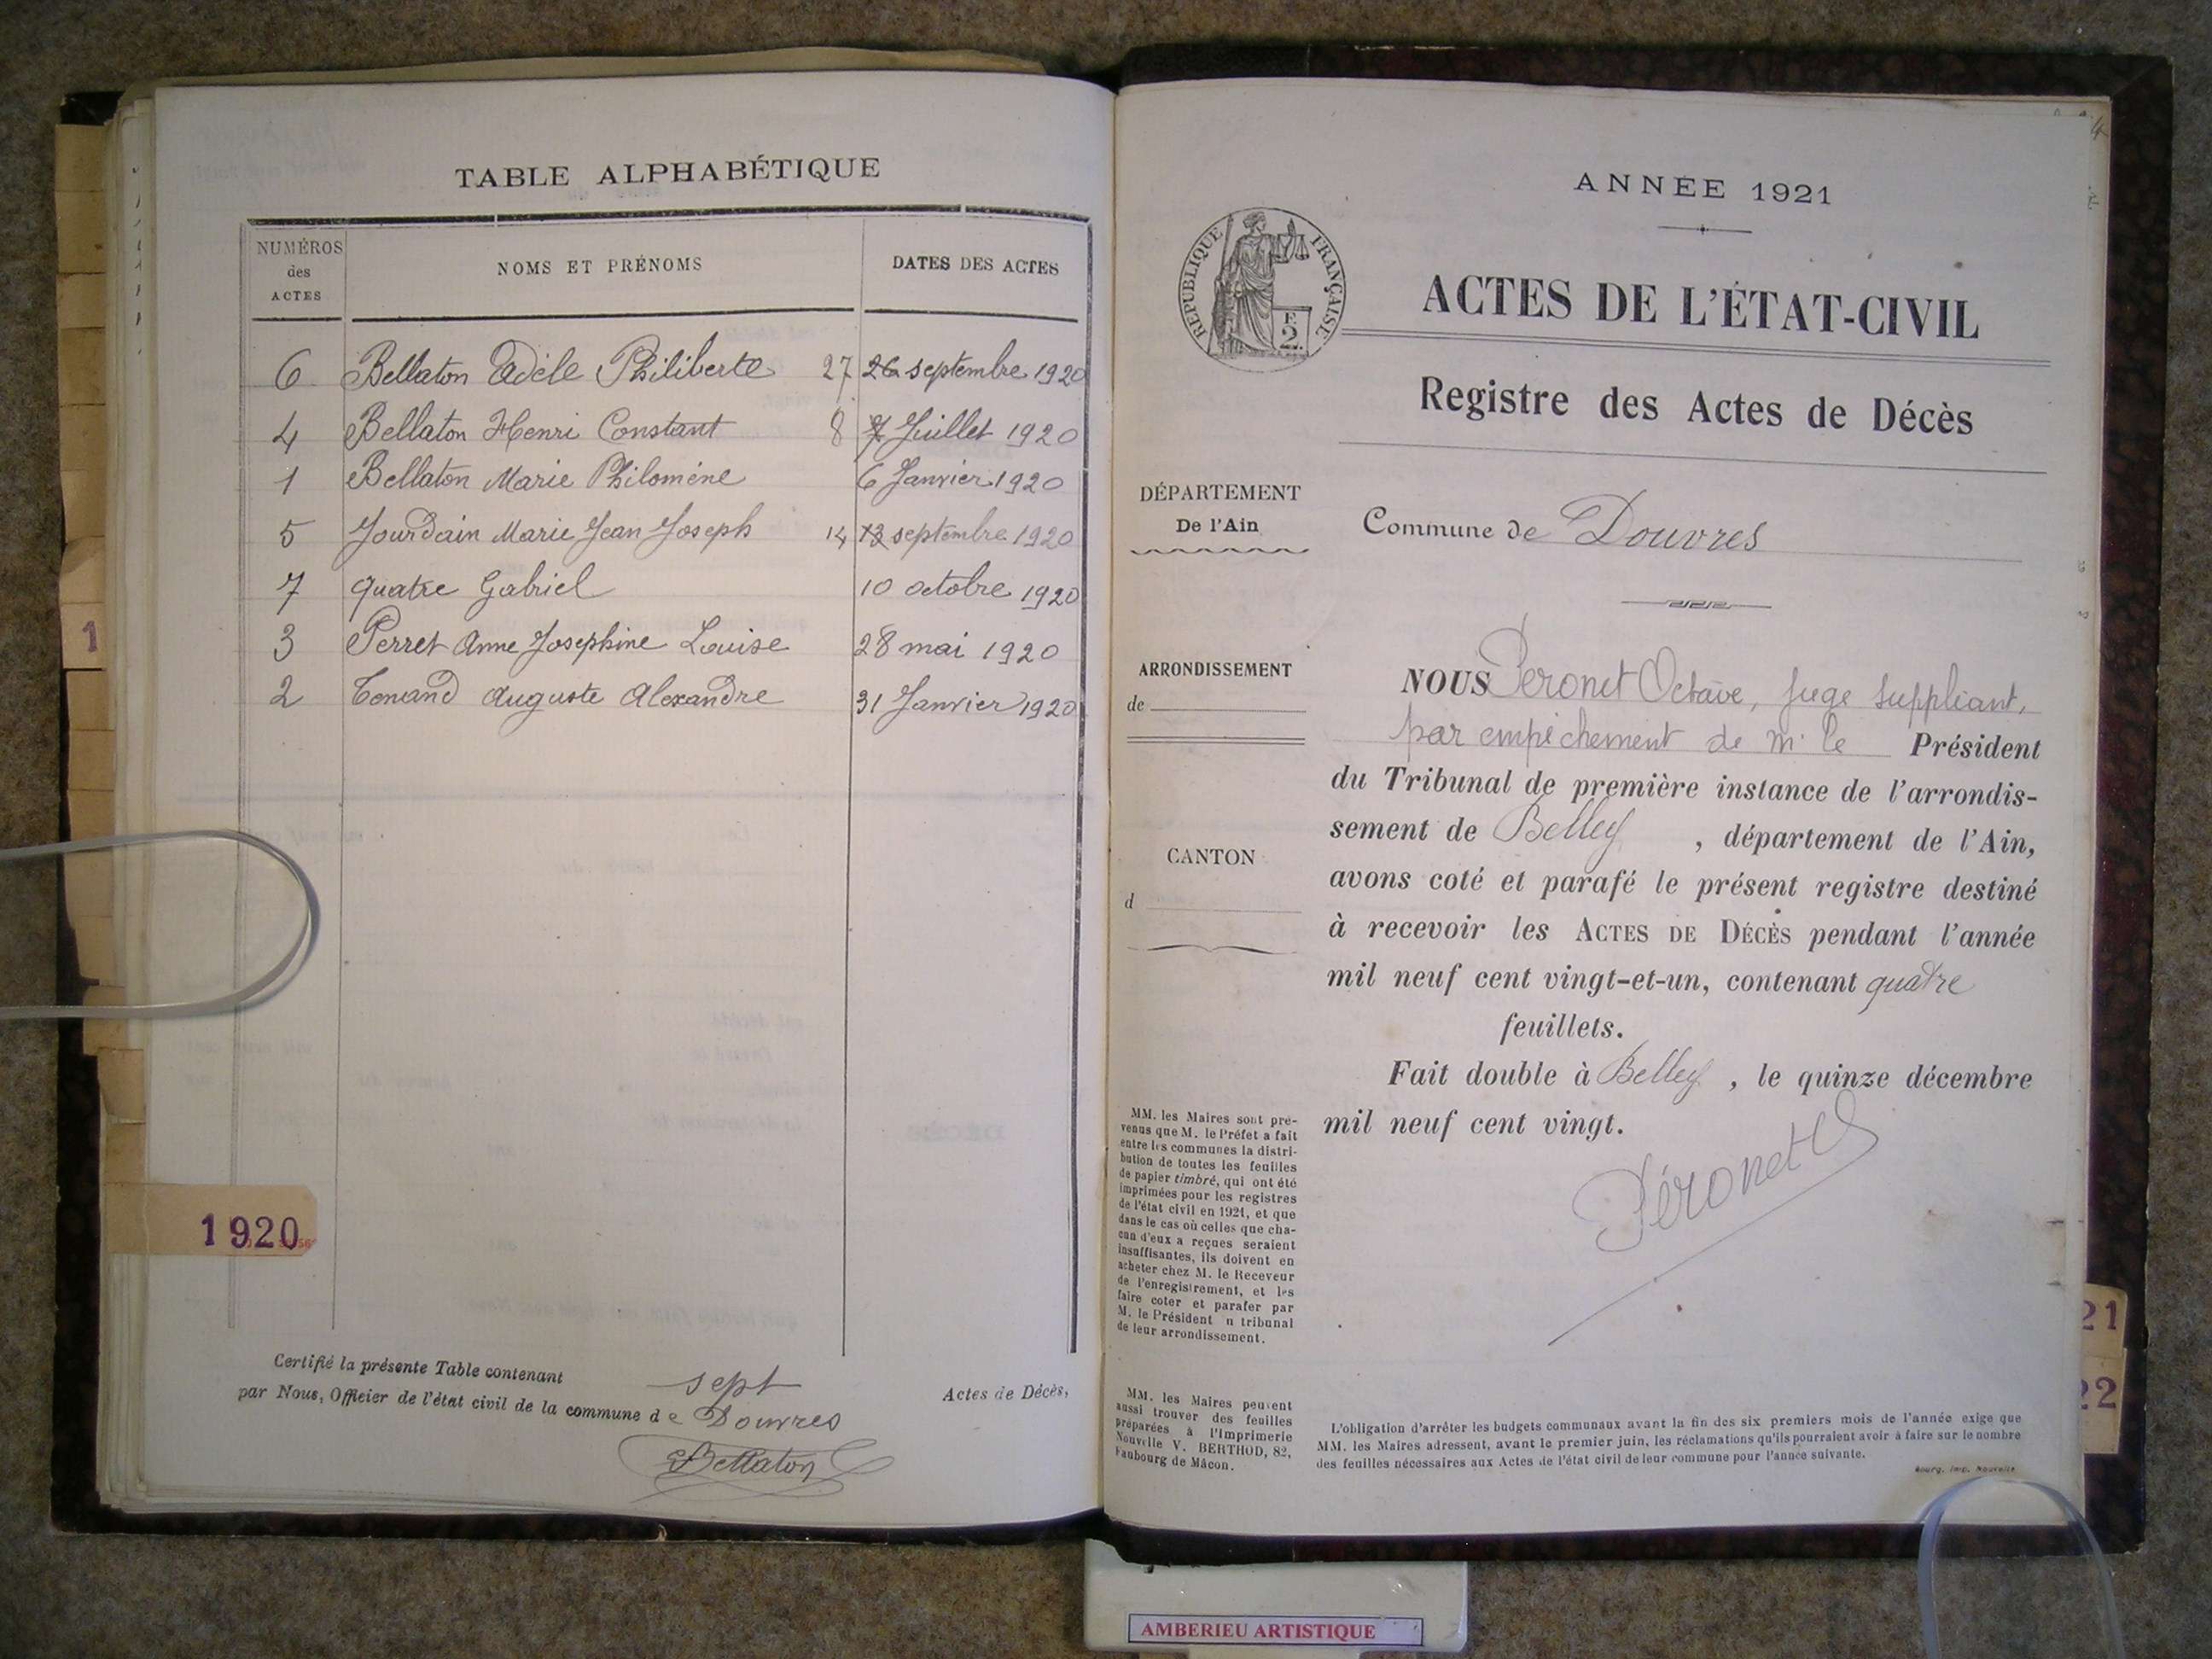 TABLE ALPHABÉTIQUE
NUMÉROS
des
ACTES
NOMS ET PRÉNOMS
DATES DES ACTES
6 Bellaton Adèle Philiberte 27 26 septembre 1920
4 Bellaton Henri Constant 8 7 Juillet 1920
1 Bellaton Marie Philomène 6 Janvier 1920
5 Jourdain Marie Jean Joseph 14 13 septembre 1920
7 Quatre Gabriel 10 octobre 1920
3 Perret Anne Josephine Louise 28 mai 1920
2 Tenand Auguste Alexandre 31 Janvier 1920
1
1920
Certifié la présente Table contenant sept Actes de Décès,
par Nous, Officier de l'état civil de la commune de Douvres
Bellaton
ANNÉE 1921
RÉPUBLIQUE FRANÇAISE
F
2
ACTES DE L'ÉTAT-CIVIL
Registre des Actes de Décès
DÉPARTEMENT
De l'Ain
Commune de Douvres
ARRONDISSEMENT
de
CANTON
d
NOUS Peronet Octave, juge suppléant,
par empêchement de M. le Président
du Tribunal de première instance de l'arrondis-
sement de Belley, département de l'Ain,
avons coté et parafé le présent registre destiné
à recevoir les ACTES DE DÉCÈS pendant l'année
mil neuf cent vingt-et-un, contenant quatre
feuillets.
Fait double à Belley, le quinze décembre
mil neuf cent vingt.
Péronet
MM. les Maires sont pré-
venus que M. le Préfet a fait
entre les communes la distri-
bution de toutes les feuilles
de papier timbré, qui ont été
imprimées pour les registres
de l'état civil en 1921, et que
dans le cas où celles que cha-
cun d'eux a reçues seraient
insuffisantes, ils doivent en
acheter chez M. le Receveur
de l'enregistrement, et les
faire coter et parafer par
M. le Président u tribunal
de leur arrondissement.
MM. les Maires peuvent
aussi trouver des feuilles
préparées à l'Imprimerie
Nouvelle V. BERTHOD, 82,
Faubourg de Mâcon.
L'obligation d'arrêter les budgets communaux avant la fin des six premiers mois de l'année exige que
MM. les Maires adressent, avant le premier juin, les réclamations qu'ils pourraient avoir à faire sur le nombre
des feuilles nécessaires aux Actes de l'état civil de leur commune pour l'année suivante.
Bourg, Imp. Nouvelle
21
22
AMBERIEU ARTISTIQUE